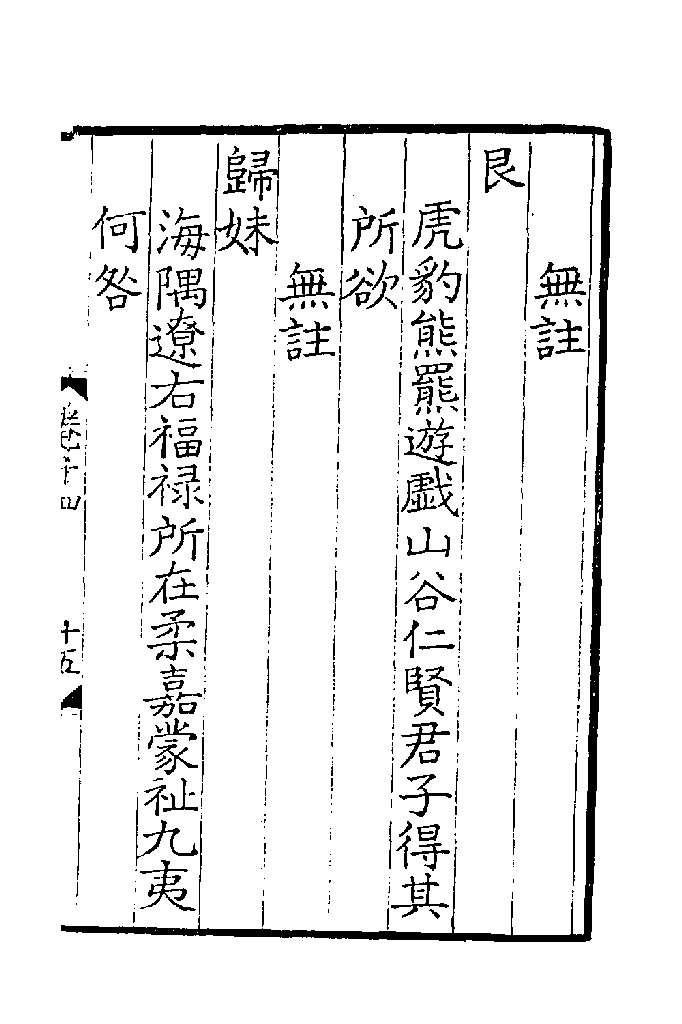 無註
艮
虎豹熊羆遊戲山谷仁賢君子得其
所欲
無註
歸妹
海隅遼右福禄所在柔嘉蒙祉九夷
何咎
卷十四
十五